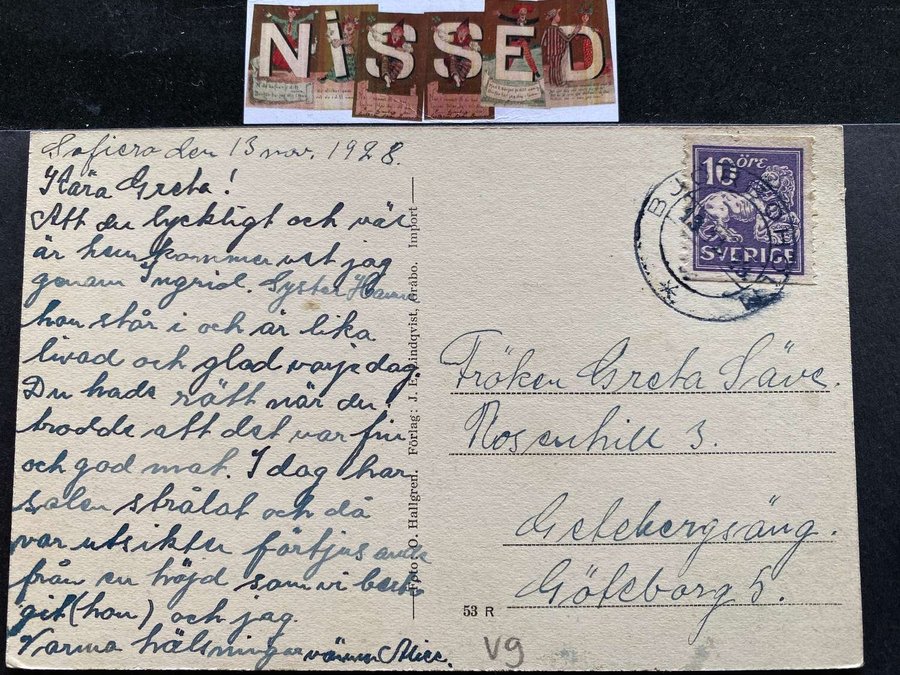 NiSSED
Sofiero den 13 nov. 1928.
Kära Greta!
Att du lyckligt och väl
är hemkommen vet jag
genom Ingrid. Syster Hanna
hon står i och är lika
livad och glad varje dag.
Du hade rätt när du
trodde att det var fin
och god mat. I dag har
solen strålat och då
var utsikten förtjusande
från en höjd som vi besti
git (hon) och jag.
Varma hälsningar vännen
Foto O. Hallgren. Förlag: J. E. Lindqvist, Gråbo. Import
10 ÖRE
SVERIGE
Fröken Greta Säve.
Rosenhill 3.
Getebergsäng.
Göteborg 5.
53 R
vg